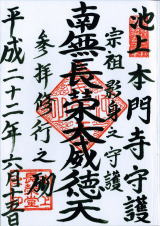 池上
本門寺守護
宗祖影身之守護
南無長榮大威德天
参拝修行之砌
平成二十二年六月十三日